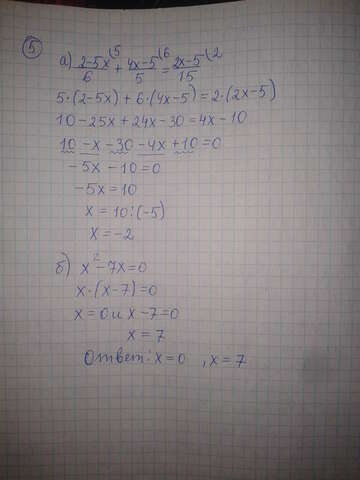 5
а) (2-5x)/6 (5 + (4x-5)/5 (6 = (2x-5)/15 (2
5·(2-5x) + 6·(4x-5) = 2·(2x-5)
10-25x + 24x-30 = 4x-10
10 -x -30 -4x +10 = 0
-5x -10 = 0
-5x = 10
x = 10:(-5)
x = -2
б) x² -7x = 0
x·(x-7) = 0
x = 0 и x -7 = 0
x = 7
Ответ: x = 0 , x = 7